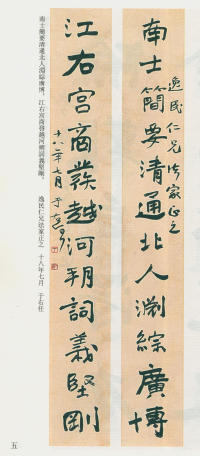 逸民仁兄法家正之
南士簡要清通北人淵綜廣博
江右宮商發越河朔詞義堅剛
十八年七月 于右任
南士簡要清通北人淵綜廣博,江右宮商發越河朔詞義堅剛。 逸民仁兄法家正之 十八年七月 于右任
五